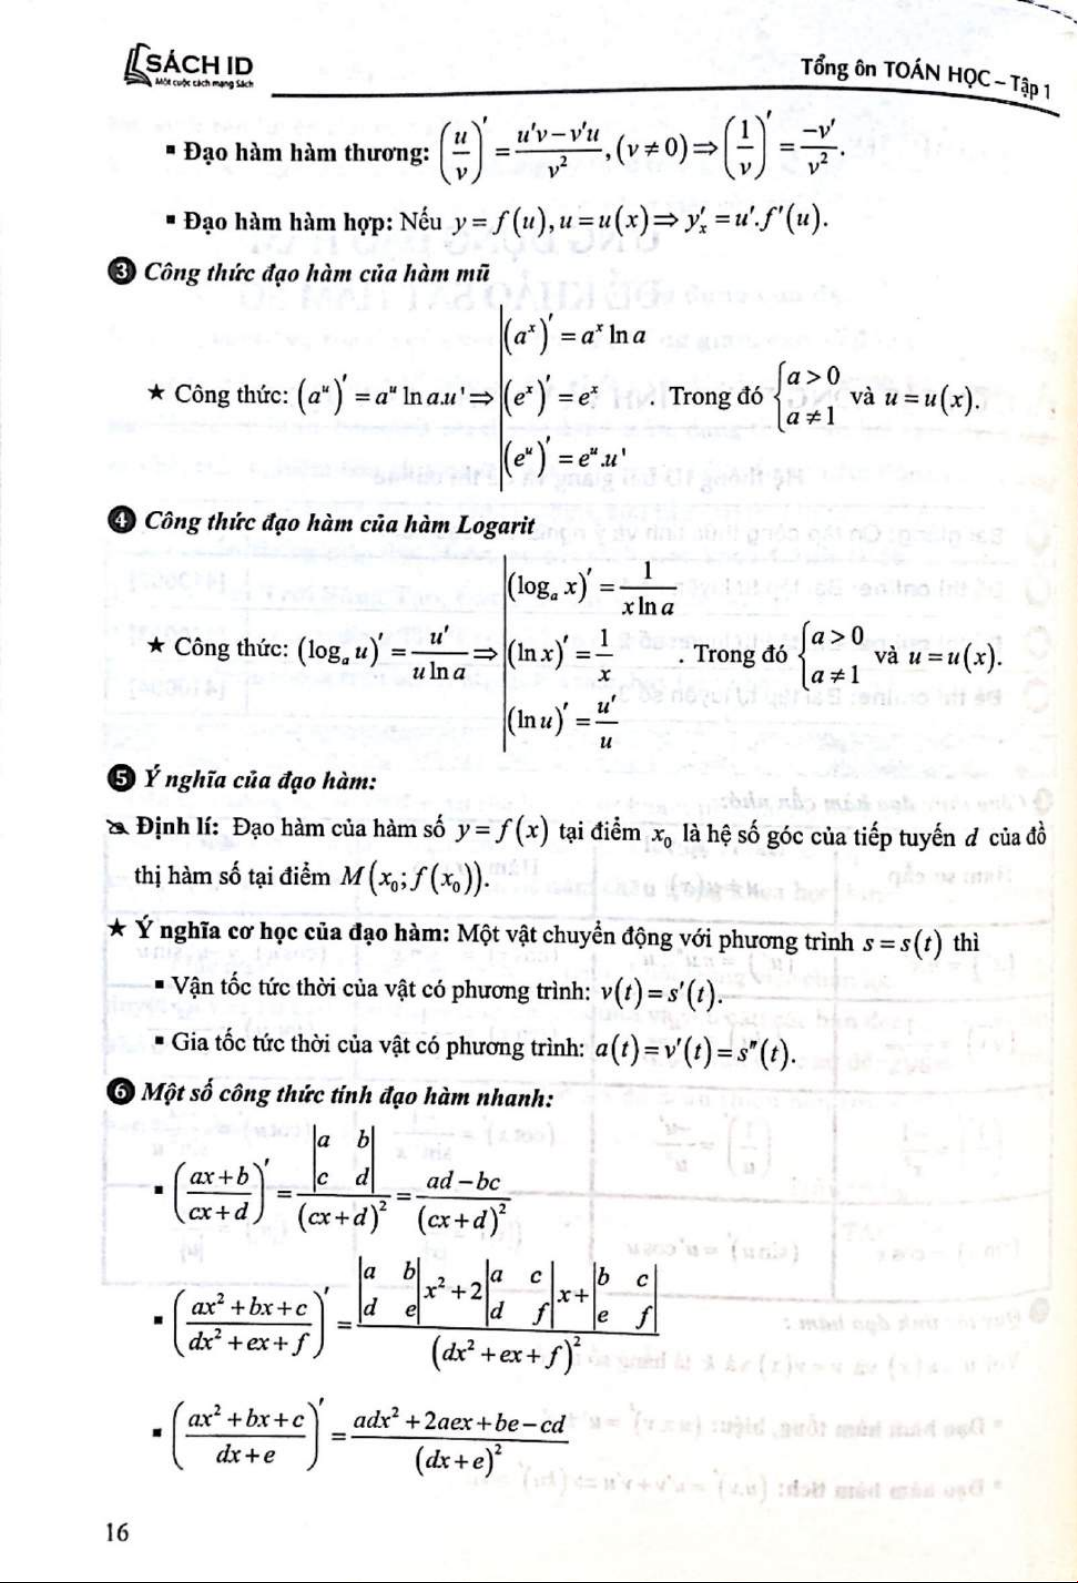 SÁCH ID
Một cuộc cách mạng Sách
Tổng ôn TOÁN HỌC – Tập 1
▪ Đạo hàm hàm thương: (u/v)′ = (u′v − v′u)/v², (v ≠ 0) ⇒ (1/v)′ = −v′/v².
▪ Đạo hàm hàm hợp: Nếu y = f(u), u = u(x) ⇒ y′ₓ = u′.f′(u).
❸ Công thức đạo hàm của hàm mũ
★ Công thức: (aᵘ)′ = aᵘ ln a.u' ⇒ | (aˣ)′ = aˣ ln a | (eˣ)′ = eˣ | (eᵘ)′ = eᵘ.u' . Trong đó { a > 0 a ≠ 1 và u = u(x).
❹ Công thức đạo hàm của hàm Logarit
★ Công thức: (logₐ u)′ = u′/(u ln a) ⇒ | (logₐ x)′ = 1/(x ln a) | (ln x)′ = 1/x | (ln u)′ = u′/u . Trong đó { a > 0 a ≠ 1 và u = u(x).
❺ Ý nghĩa của đạo hàm:
Định lí: Đạo hàm của hàm số y = f(x) tại điểm x₀ là hệ số góc của tiếp tuyến d của đồ
thị hàm số tại điểm M(x₀; f(x₀)).
★ Ý nghĩa cơ học của đạo hàm: Một vật chuyển động với phương trình s = s(t) thì
▪ Vận tốc tức thời của vật có phương trình: v(t) = s′(t).
▪ Gia tốc tức thời của vật có phương trình: a(t) = v′(t) = s″(t).
❻ Một số công thức tính đạo hàm nhanh:
▪ ((ax + b)/(cx + d))′ = |a b; c d|/(cx + d)² = (ad − bc)/(cx + d)²
▪ ((ax² + bx + c)/(dx² + ex + f))′ = (|a b; d e|x² + 2|a c; d f|x + |b c; e f|)/(dx² + ex + f)²
▪ ((ax² + bx + c)/(dx + e))′ = (adx² + 2aex + be − cd)/(dx + e)²
16